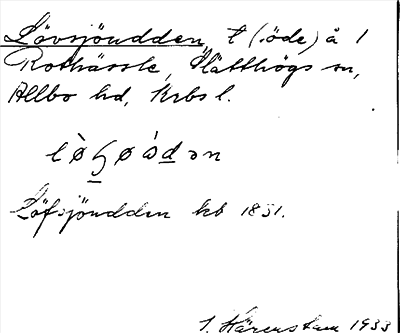 Lövsjöudden, t (:öde) å 1
Rothässle, Slätthögs sn,
Allbo hd, Krbs l.
Löfsjöudden kb 1851.
I. Härenstam 1933